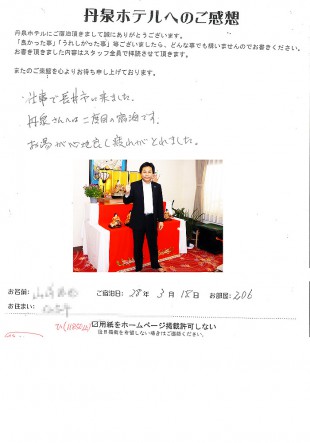 丹泉ホテルへのご感想
丹泉ホテルにご宿泊頂きまして誠にありがとうございます。
「良かった事」「うれしかった事」等ございましたら、どんな事でも構いませんのでお書きください。
お書き頂きました内容はスタッフ全員で拝読させて頂きます。
またのご来館を心よりお待ち申し上げております。
仕事で長井市に来ました。
丹泉さんは二度目の宿泊です。
お湯が心地良く疲れがとれました。
お名前:
ご宿泊日: 28年 3月 18日 お部屋: 206
お住まい:
用紙をホームページ掲載許可しない